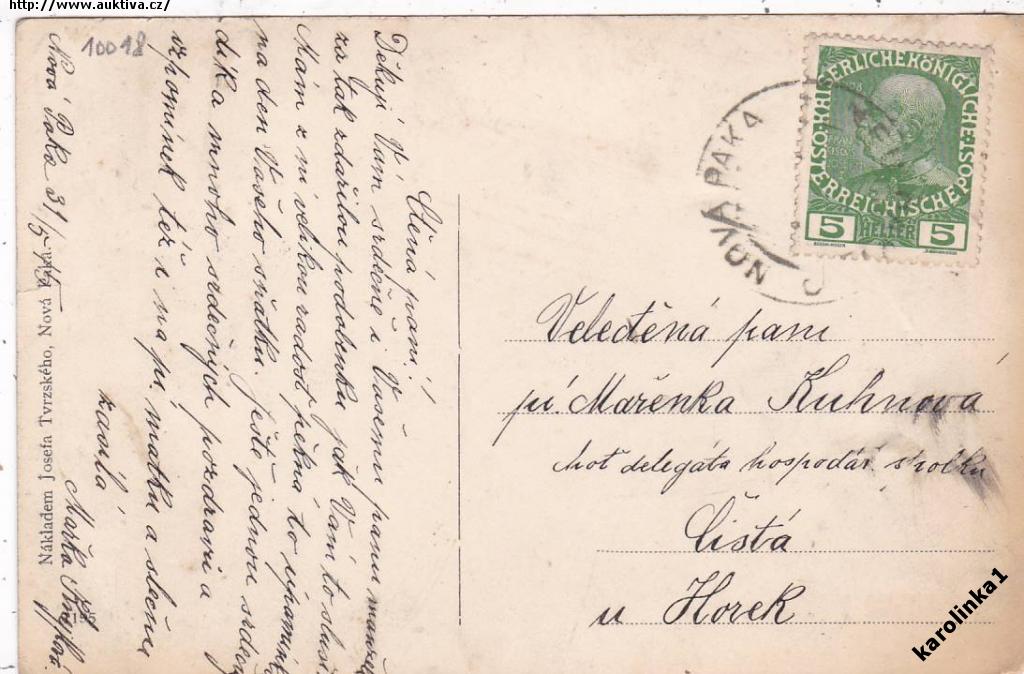 http://www.auktiva.cz/
10018
Ctěná paní!
Děkuji Vám srdečně i Vašemu panu manželi
za tak zdařilou podobenku jak Vám to sluší
Mám z ní velikou radost pěkná to upomínka
na den Vašeho sňatku. Ještě jednou srdečný
díka mnoho srdečných pozdravů a
vzpomínek též i na pí. matku a slečnu
zasílá
Mařka
Nová Paka 31/5 15
Nákladem Josefa Tvrzského, Nová Paka.
NOVÁ PAKA
KAISERLICHE KÖNIGLICHE
ÖSTERREICHISCHE POST
5 HELLER 5
Velectěná paní
pí. Mařenka Kuhnová
choť delegáta hospodář. spolku
Čistá
u Horek
karolinka1